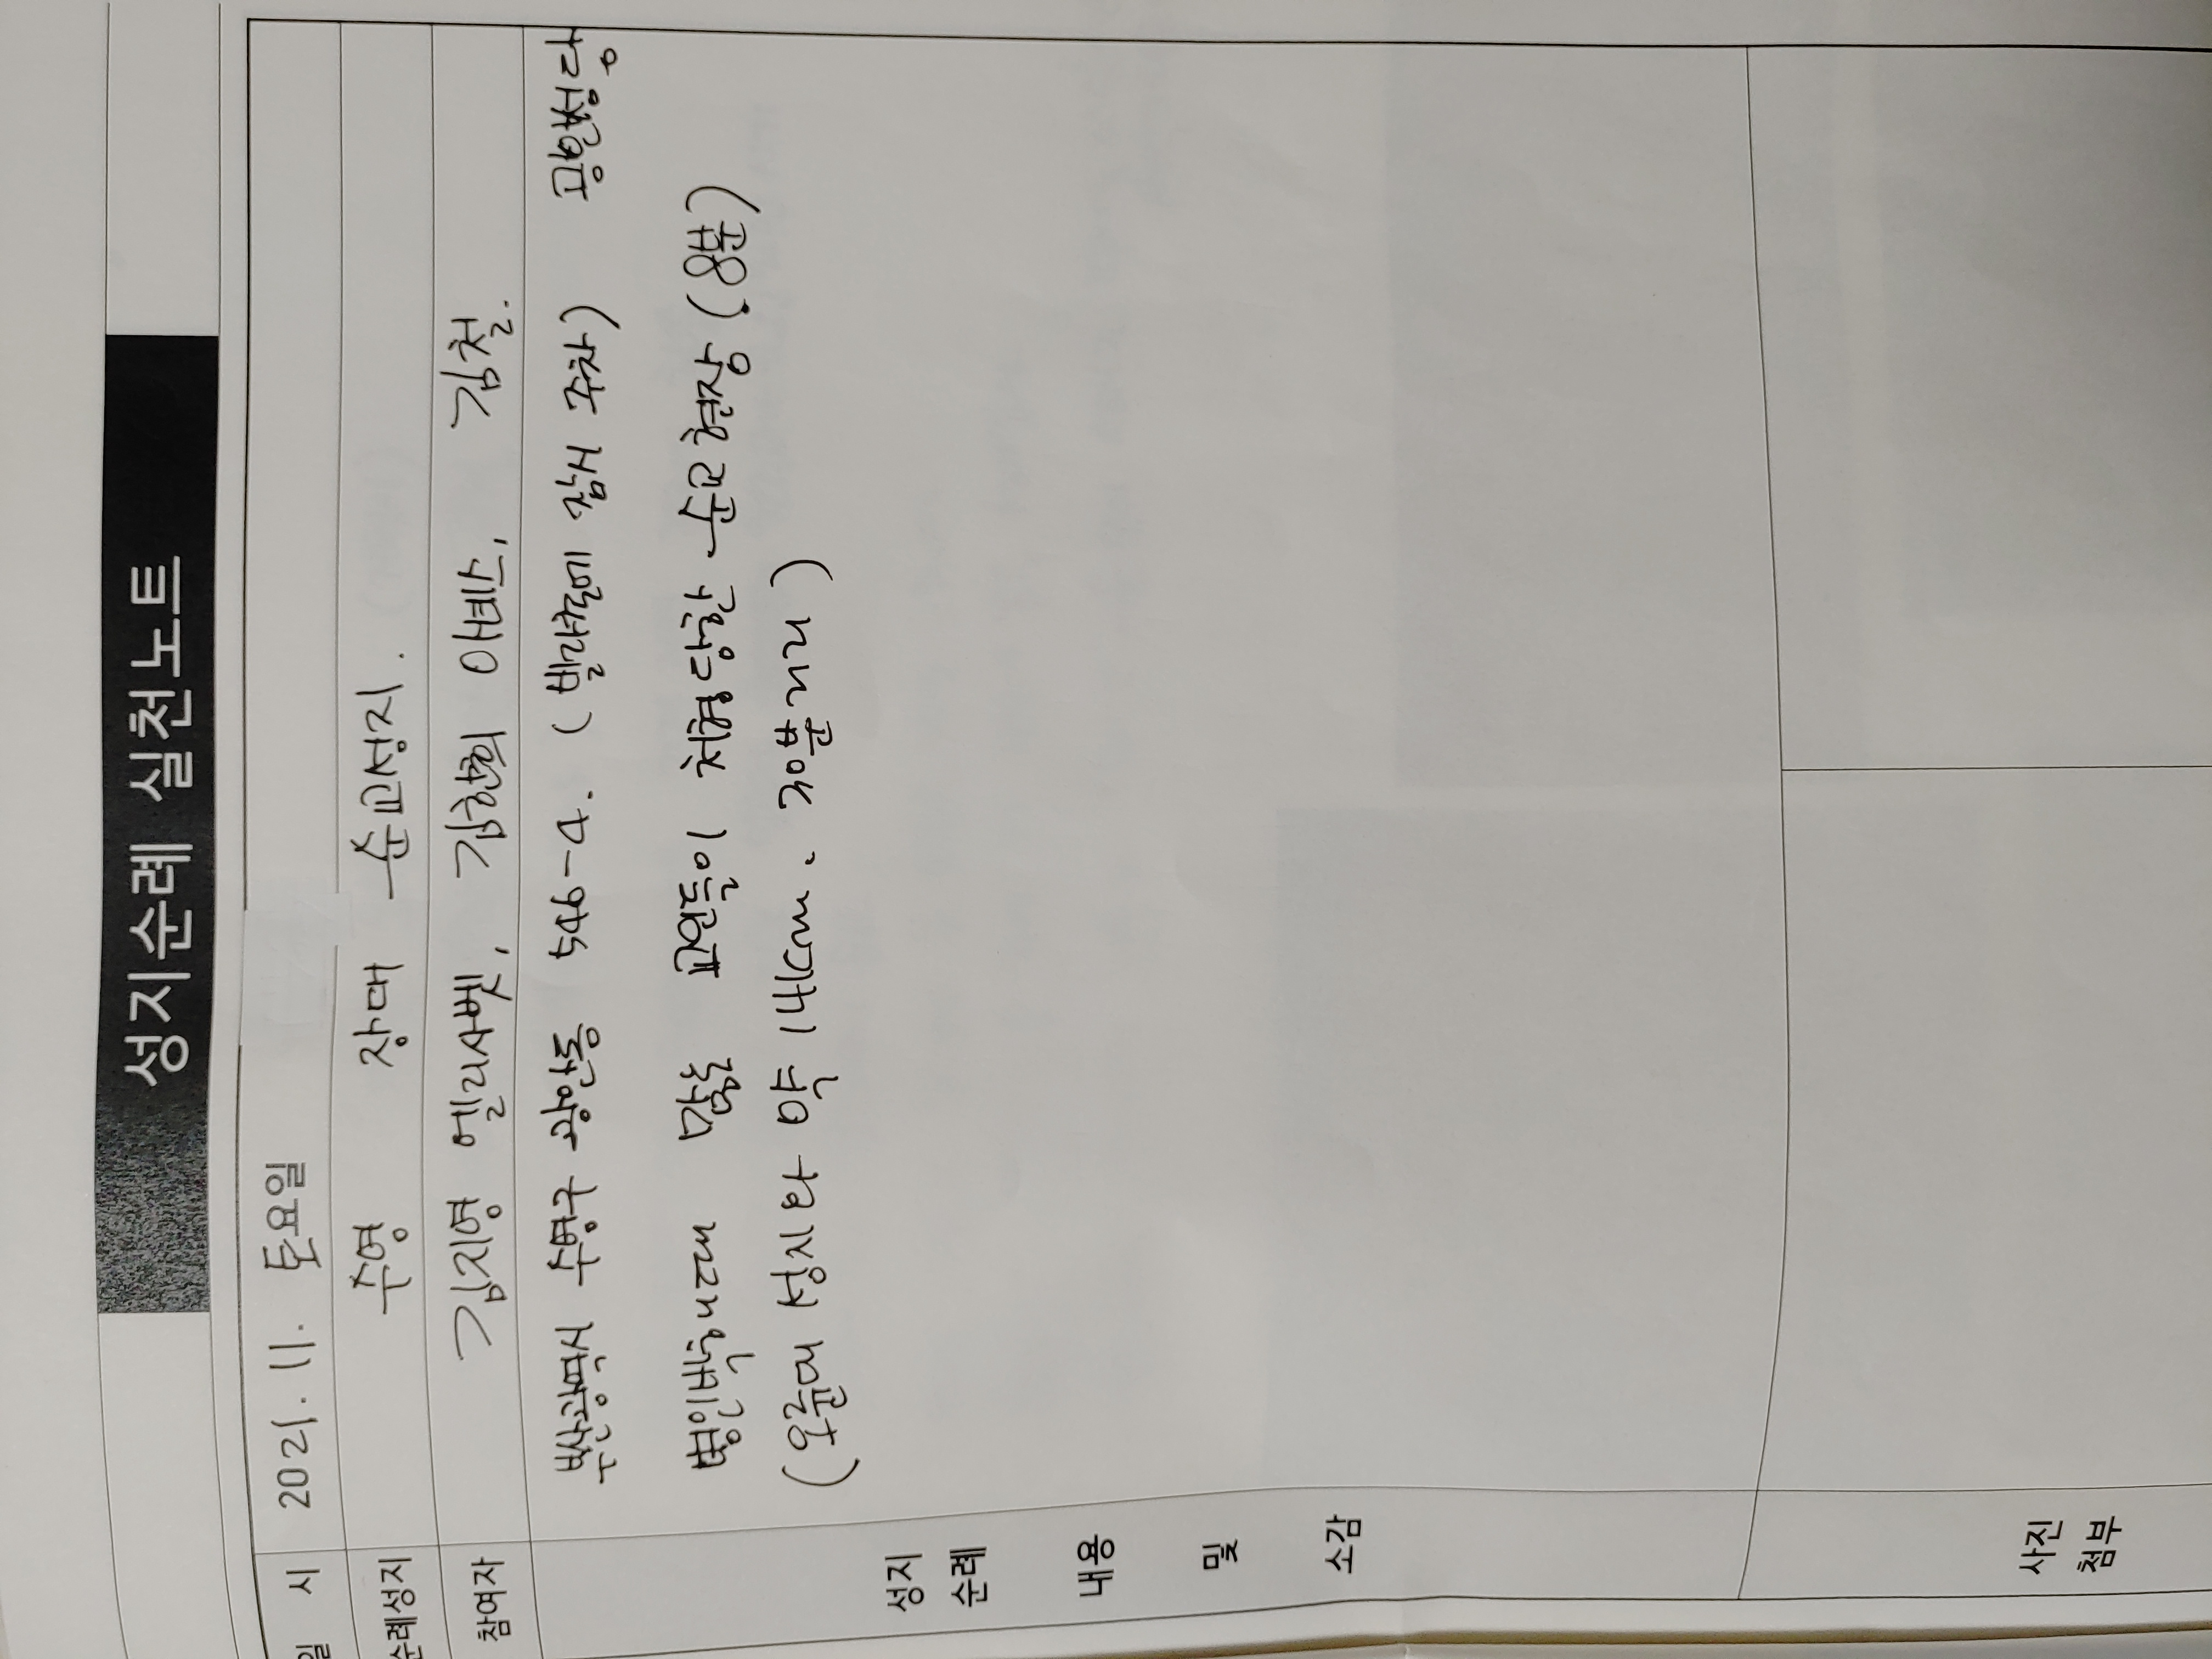 성지순례 실천노트
일 시 2021. 11. 토요일
순례성지 수영 장대 순교성지.
참여자 김지영 엘리사벳, 김한희 아녜스, 김철.
부산광역시 수영구 광안동 546-4. (벨라촌에 잠시 주차) 광안성당
병인박해때 많은 교인들이 처형당한 순교현장 (8분)
(오륜대 성지와 약 14km. 30분거리)
성지
순례
내용
및
소감
사진
첨부